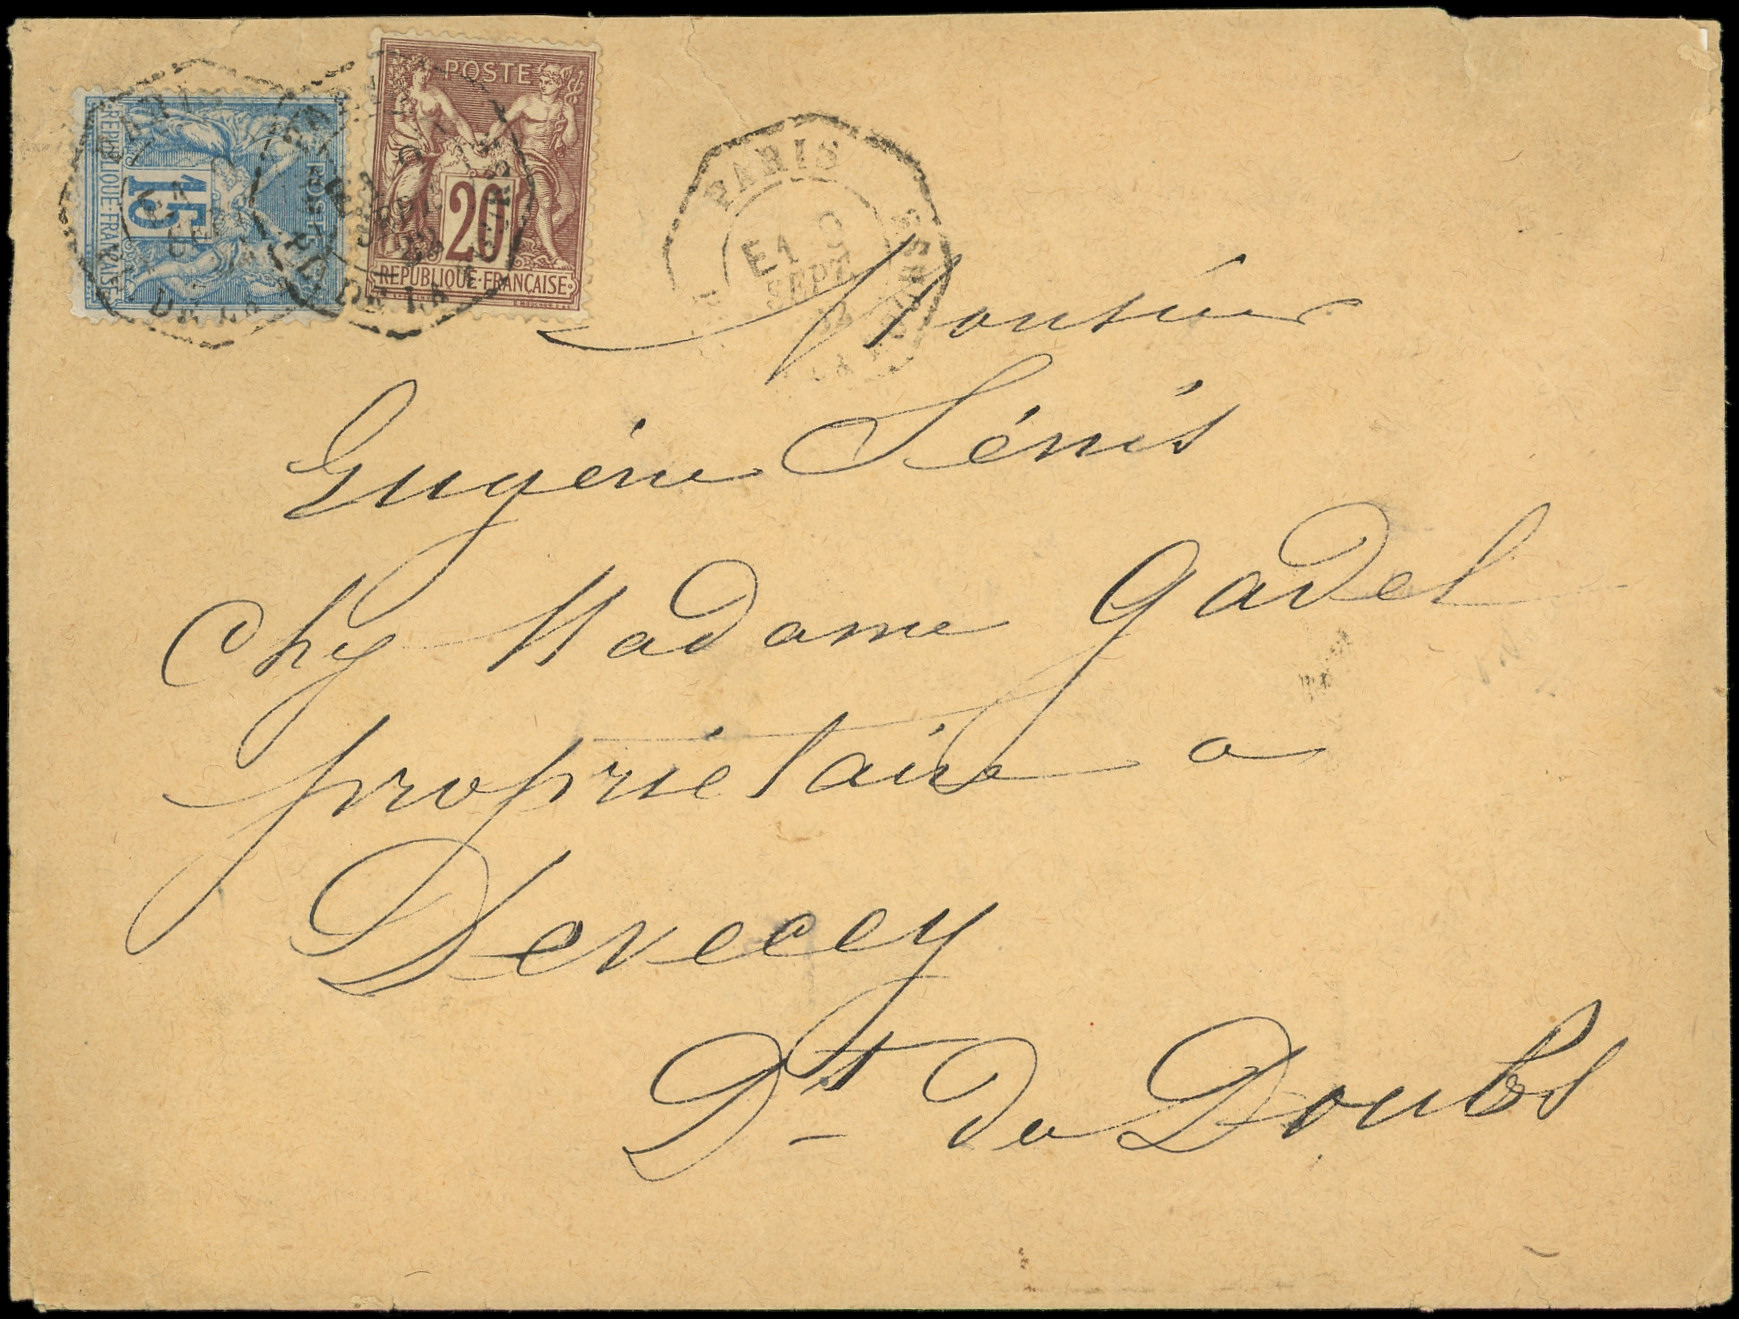 POSTE
15
REPUBLIQUE·FRANÇAISE
20
REPUBLIQUE·FRANÇAISE
DE LA
DE LA
PARIS
E1
SEPT
Monsieur
Eugène Sénis
Chez Madame Gadel
propriétaire a
Devecey
Dt du Doubs